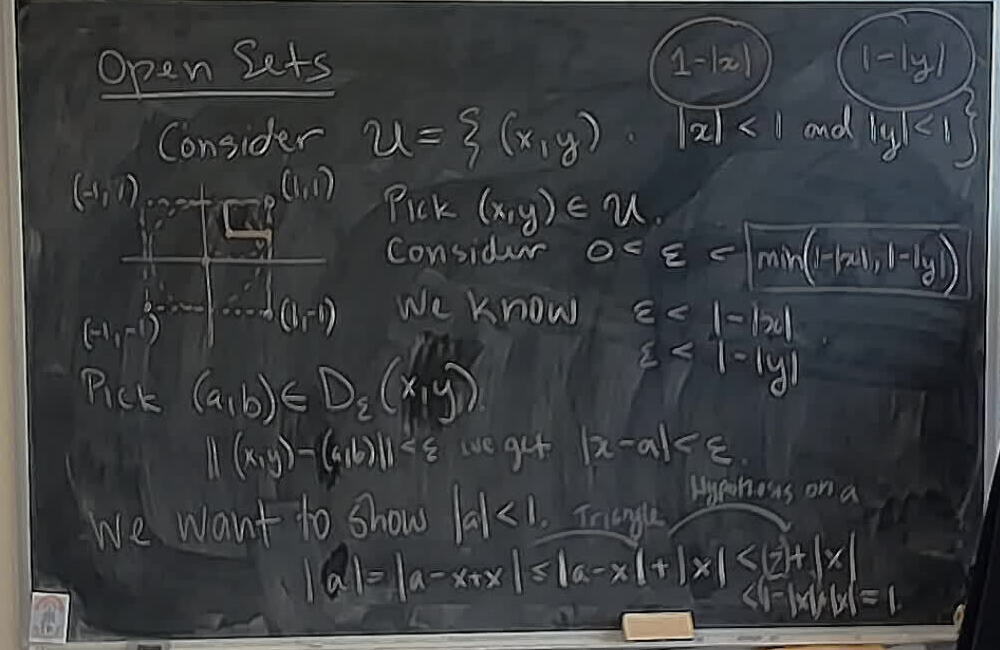 Open Sets
1-|x| 1-|y|
Consider U = { (x,y) . |x| < 1 and |y| < 1 }
(-1,1) (1,1)
(-1,-1) (1,-1)
Pick (x,y) ∈ U.
Consider 0 < ε < min(1-|x|, 1-|y|)
We know ε < 1-|x|
ε < 1-|y|
Pick (a,b) ∈ D_ε(x,y)
|| (x,y) - (a,b) || < ε we get |x-a| < ε.
We want to show |a| < 1. Triangle Hypothesis on a
|a| = |a-x+x| ≤ |a-x| + |x| < (ε) + |x|
< 1-|x|+|x| = 1.